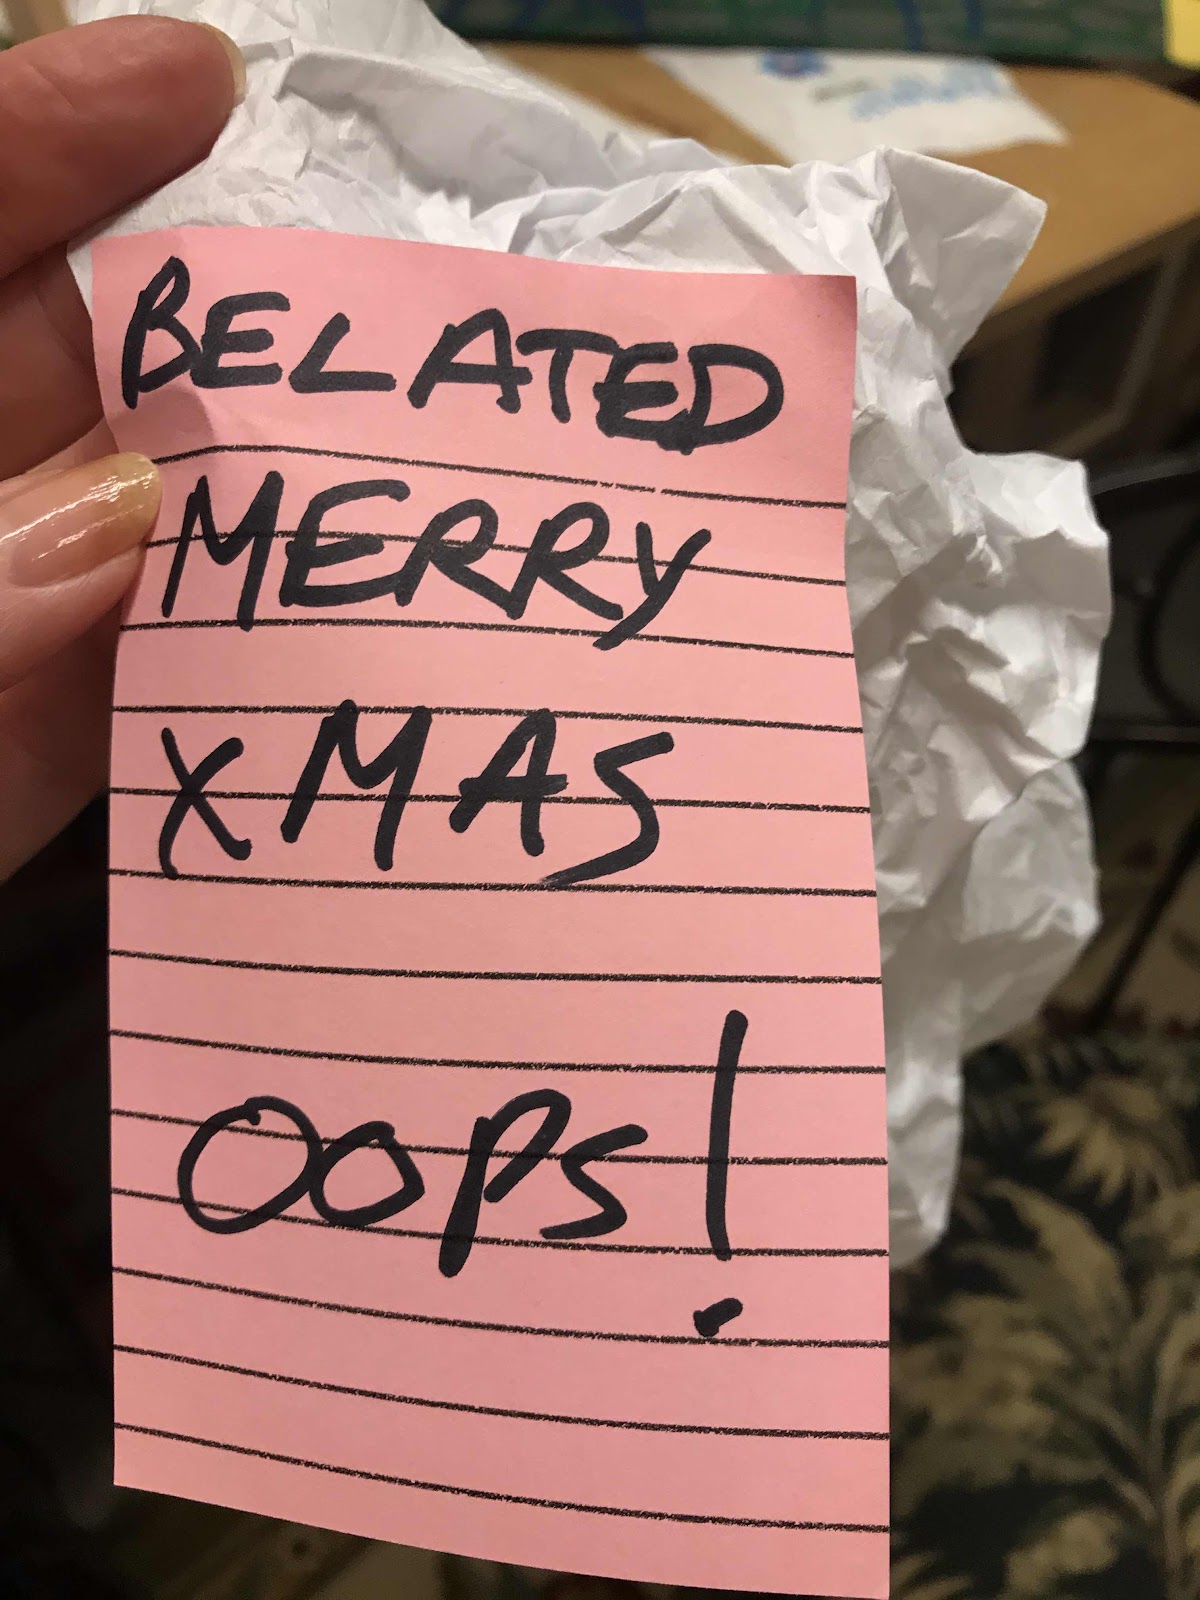 BELATED
MERRY
XMAS
OOPS!